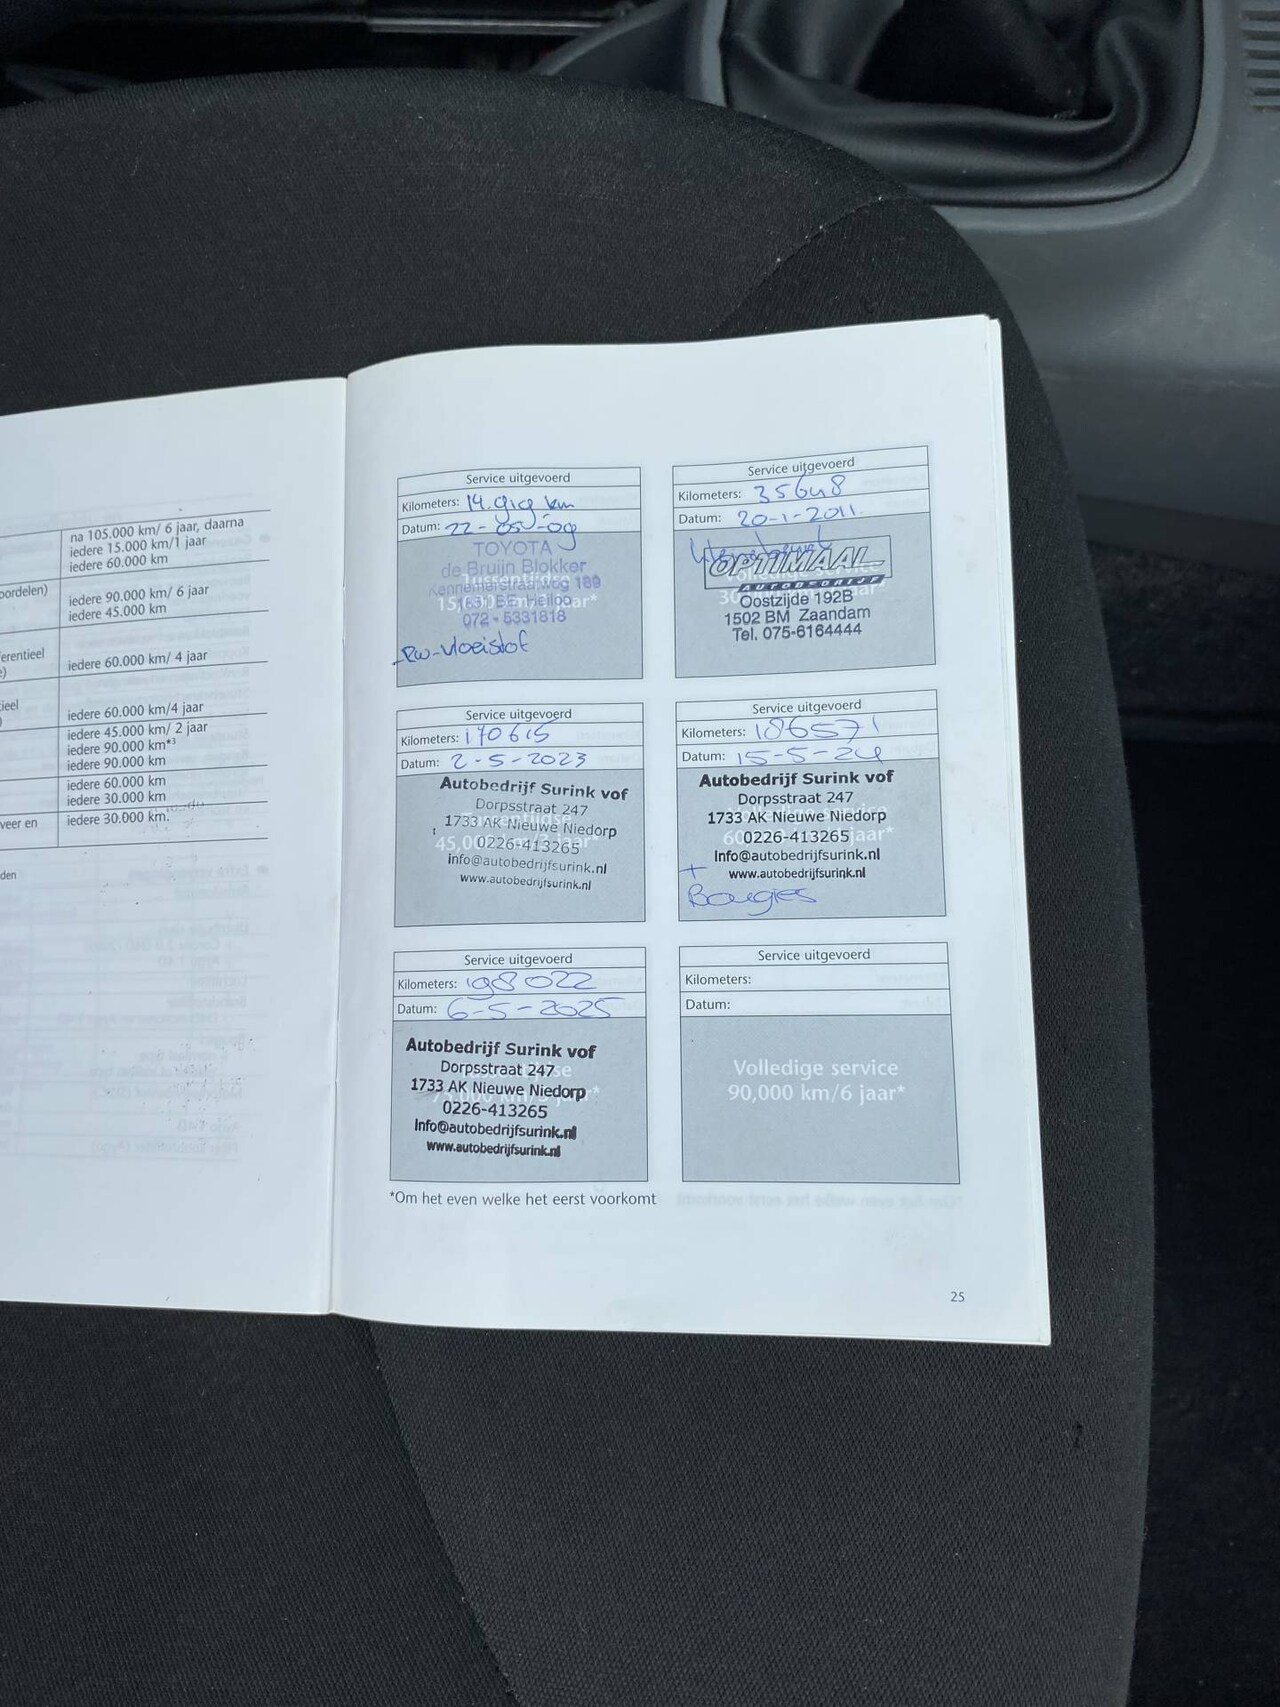 na 105.000 km/ 6 jaar, daarna
iedere 15.000 km/1 jaar
iedere 60.000 km
oordelen)
iedere 90.000 km/ 6 jaar
iedere 45.000 km
erentieel
e)
iedere 60.000 km/ 4 jaar
ieel
)
iedere 60.000 km/4 jaar
iedere 45.000 km/ 2 jaar
iedere 90.000 km*3
iedere 90.000 km
iedere 60.000 km
iedere 30.000 km
veer en
iedere 30.000 km.
den
Service uitgevoerd
Kilometers: 14.919 km
Datum: 22-05-09
TOYOTA
de Bruijn Blokker
Kennemerstraatweg 189
1851 BE Heiloo
072 - 5331818
Tussentijdse
15,000 km/1 jaar*
Rw-vloeistof
Service uitgevoerd
Kilometers: 35648
Datum: 20-1-2011.
OPTIMAAL
AUTOBEDRIJF
Oostzijde 192B
1502 BM Zaandam
Tel. 075-6164444
Service uitgevoerd
Kilometers: 170615
Datum: 2-5-2023
Autobedrijf Surink vof
Dorpsstraat 247
1733 AK Nieuwe Niedorp
0226-413265
info@autobedrijfsurink.nl
www.autobedrijfsurink.nl
Service uitgevoerd
Kilometers: 186571
Datum: 15-5-24
Autobedrijf Surink vof
Dorpsstraat 247
1733 AK Nieuwe Niedorp
0226-413265
Info@autobedrijfsurink.nl
www.autobedrijfsurink.nl
+
Bougies
Service uitgevoerd
Kilometers: 198022
Datum: 6-5-2025
Autobedrijf Surink vof
Dorpsstraat 247
1733 AK Nieuwe Niedorp
0226-413265
Info@autobedrijfsurink.nl
www.autobedrijfsurink.nl
Service uitgevoerd
Kilometers:
Datum:
Volledige service
90,000 km/6 jaar*
*Om het even welke het eerst voorkomt
25